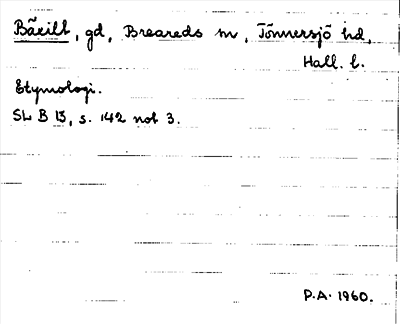 Bäxilt, gd, Breareds sn, Tönnersjö hd,
Hall. l.
Etymologi.
SL B 13, s. 142 not 3.
P.A. 1960.